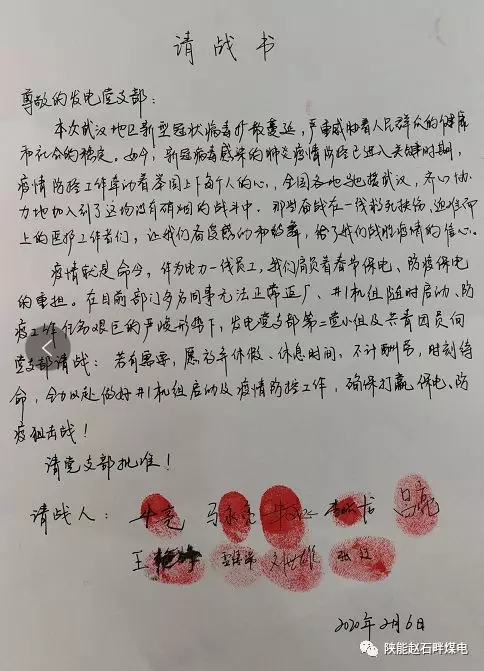 请战书
尊敬的发电党支部:
本次武汉地区新型冠状病毒扩散蔓延,严重威胁着人民群众的健康
和社会的稳定。如今,新冠病毒感染的肺炎疫情防控已进入关键时期,
疫情防控工作牵动着举国上下每个人的心,全国各地驰援武汉,齐心协
力地加入到了这场没有硝烟的战斗中,那些奋战在一线救死扶伤、迎难而
上的医护工作者们,让我们备受感动和鼓舞,给了我们战胜疫情的信心。
疫情就是命令,作为电力一线员工,我们肩负着春节保电、防疫保电
的重担。在目前部门多名同事无法正常返厂、#1机组随时启动、防
疫工作任务艰巨的严峻形势下,发电党支部第三党小组及共青团员向
党支部请战:若有需要,愿放弃休假、休息时间,不计酬劳,时刻待
命,全力以赴做好#1机组启动及疫情防控工作,确保打赢保电、防
疫狙击战!
请党支部批准!
请战人: 牛亮 马永亮
王
2020年2月6日
陕能赵石畔煤电